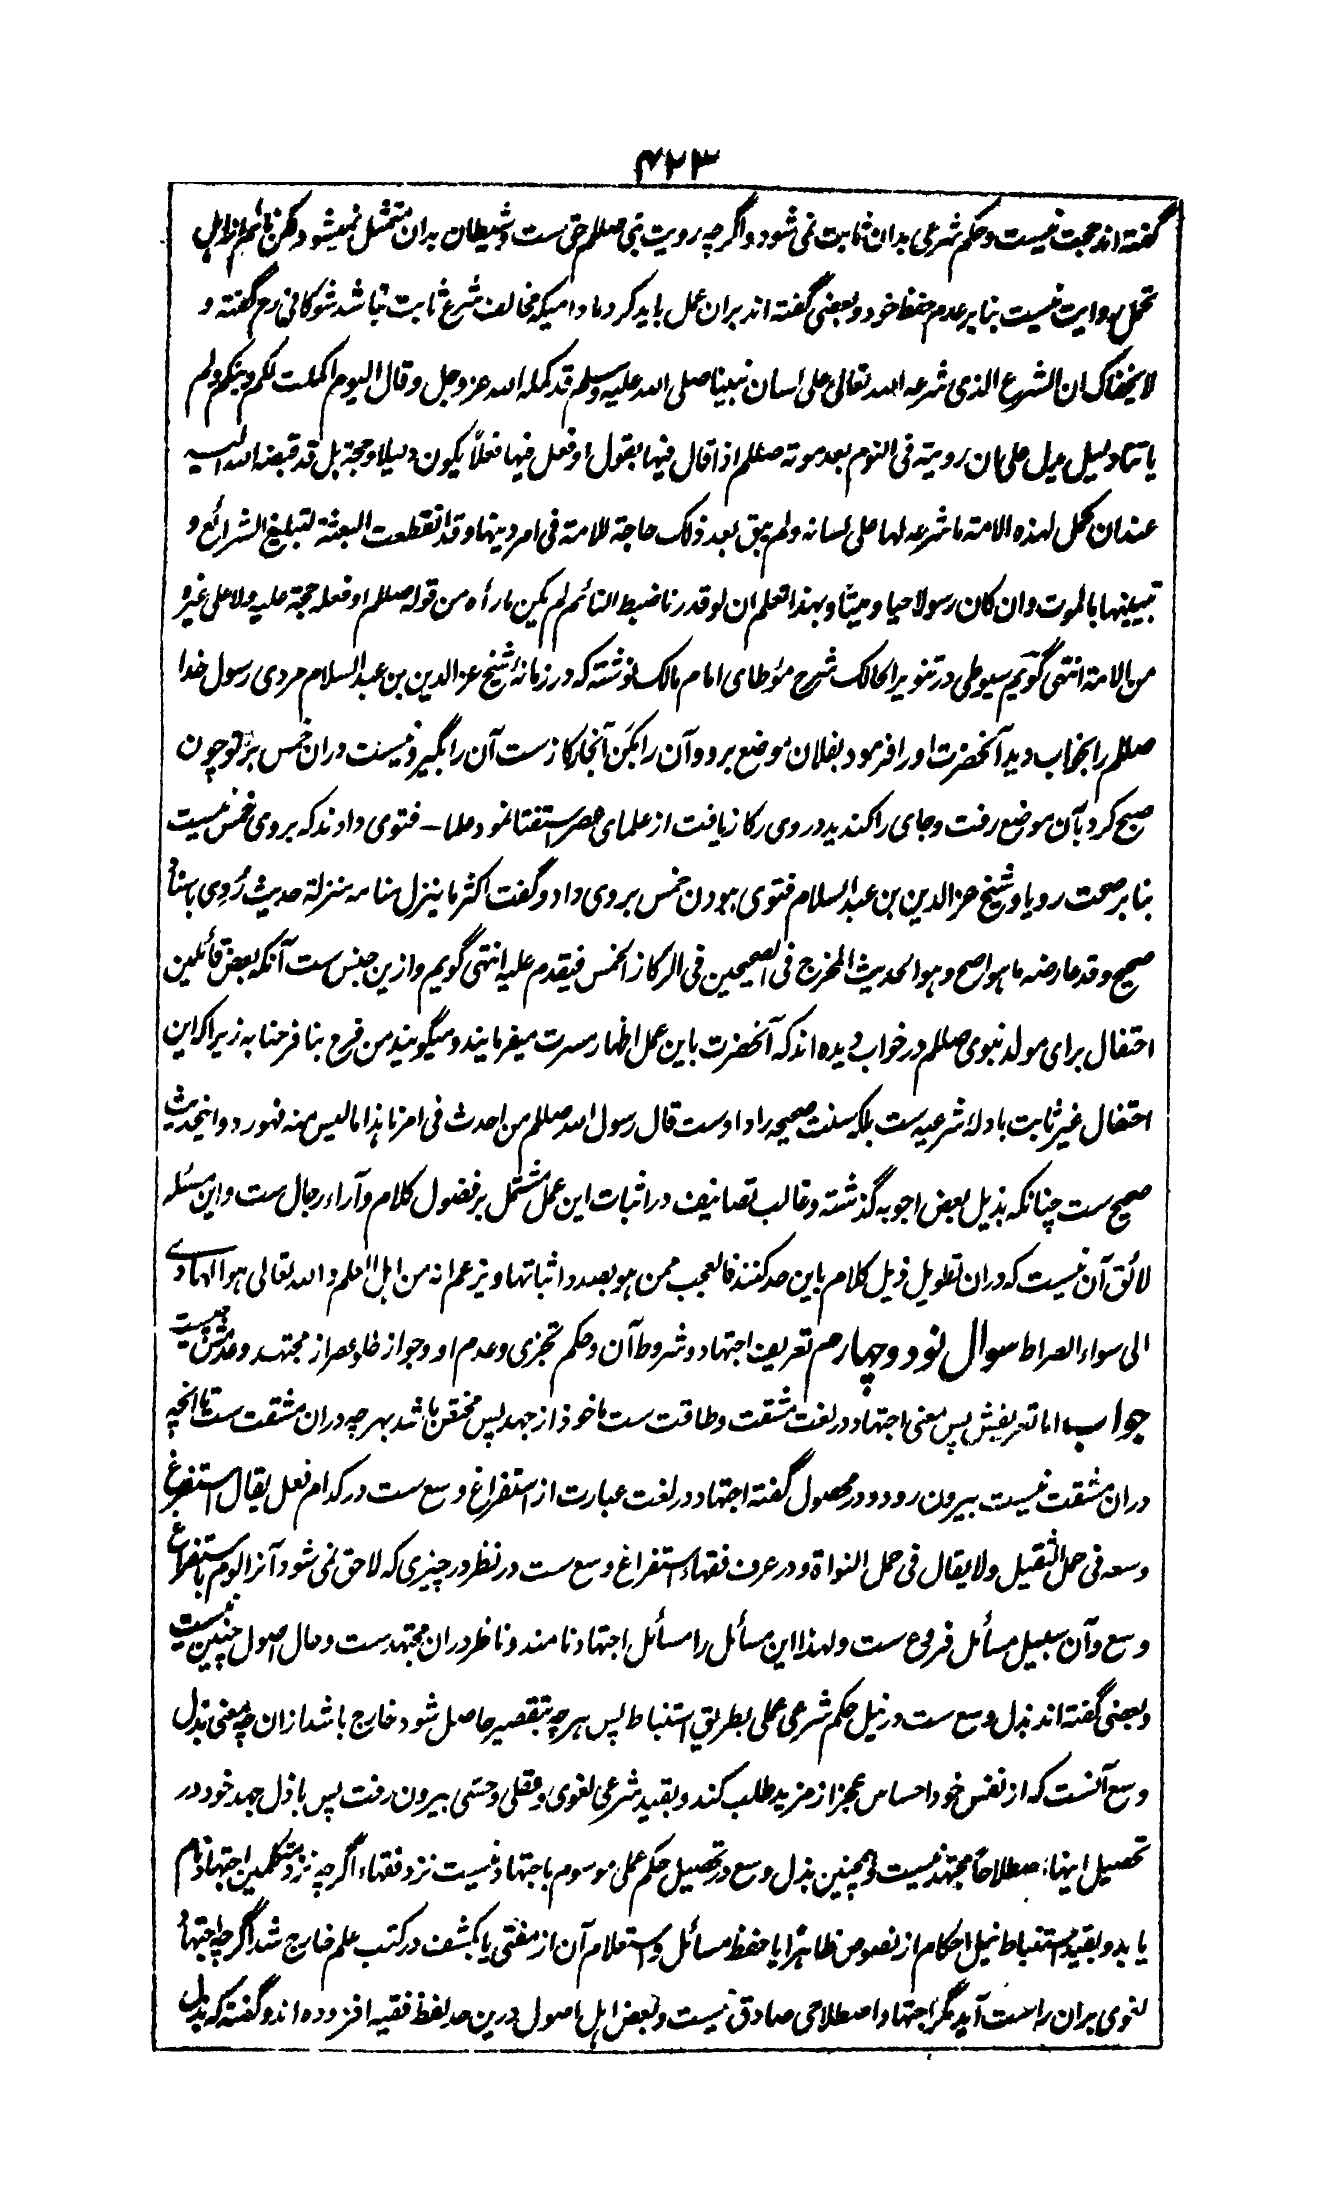 ۴۲۳
گفته‌اند حجت نیست و حکم شرعی بدان ثابت نمی‌شود و اگرچه رویت نبی صللم حق ست و شیطان بدان متمثل نمیشود لکن نائم از اهل
تحمل روایت نیست بنا بر عدم حفظ خود و بعضی گفته‌اند بران عمل باید کرد مادامیکه مخالف شرع ثابت نباشد شوکانی رح گفته و
لا یخفاک ان الشرع الذی شرعه الله تعالی علی لسان نبینا صلی الله علیه وسلم قد کمله الله عز و جل و قال الیوم اکملت لکم دینکم ولم
یاتنا دلیل یدل علی ان رویته فی النوم بعد موته صللم اذا قال فیها بقول او فعل فیها فعلاً یکون دلیلا و حجة بل قد قبضه الله الیه
عند ان کمل لهذه الامة ما شرعه لها علی لسانه ولم یبق بعد ذلک حاجة للامة فی امر دینها و قد انقطعت البعثة لتبلیغ الشرائع و
تبیینها بالموت و ان کان رسولا حیا و میتا و بهذا تعلم ان لو قدرنا ضبط النائم لم یکن ما رأه من قوله صللم او فعله حجة علیه ولا علی غیره
من الامة انتهی گویم سیوطی در تنویر الحالک شرح مؤطای امام مالک نوشته که در زمانهٔ شیخ عز الدین بن عبد السلام مردی رسول خدا
صللم را بخواب دید آنحضرت او را فرمود بفلان موضع برو و آن را بکَن آنجا رکازست آن را بگیر و نیست دران خمس بر تو چون
صبح کرد بآن موضع رفت و جای را کندید در وی رکاز یافت از علمای عصر استفتا نمود علما فتوی دادند که بر وی خمس نیست
بنا بر صحت رویا و شیخ عز الدین بن عبد السلام فتوی ببودن خمس بر وی داد و گفت اکثر ما ینزل منامه منزلة حدیث رُوِی باسناد
صحیح و قد عارضه ما هو اصح و هو الحدیث المخرج فی الصحیحین فی الرکاز الخمس فیقدم علیه انتهی گویم و ازین جنس ست آنکه بعض قائلین
احتفال برای مولد نبوی صللم در خواب دیده‌اند که آنحضرت باین عمل اظهار مسرت میفرمایند و میگویند من فرح بنا فرحنا به زیراکه این
احتفال غیر ثابت بادلهٔ شرعیه ست بلکه سنت صحیحه راد اوست قال رسول الله صللم من احدث فی امرنا هذا ما لیس منه فهو رد و اینحدیث
صحیح ست چنانکه بذیل بعض اجوبه گذشته و غالب تصانیف در اثبات این عمل مشتمل بر فضول کلام و آراء رجال ست و این مسئله
لائق آن نیست که دران تطویل ذیل کلام باین حد کنند فالعجب ممن هو بصدد اثباتها و یزعم انه من اهل العلم و الله تعالی هو الهادی
الی سواء الصراط سوال نود و چهارم تعریف اجتهاد و شروط آن و حکم تجزی و عدم او و جواز خلو عصر از مجتهد و عدمش چیست
جواب اما تعریفش پس معنی اجتهاد در لغت مشقت و طاقت ست ماخوذ از جهد پس مختص باشد بهر چه دران مشقت ست تا آنچه
دران مشقت نیست بیرون رود و در محصول گفته اجتهاد در لغت عبارت از استفراغ وسع ست در کدام فعل یقال استفرغ
وسعه فی حمل الثقیل ولا یقال فی حمل النواة و در عرف فقهاء استفراغ وسع ست در نظر در چیزی که لاحق نمی‌شود آنرا لوم با ستفراغ
وسع و آن سبیل مسائل فروع ست و لهذا این مسائل را مسائل اجتهاد نامند و ناظر دران مجتهد ست و حال اصول چنین نیست
و بعضی گفته‌اند بذل وسع ست در نیل حکم شرعی عملی بطریق استنباط پس هر چه بتقصیر حاصل شود خارج باشد ازان چه معنی بذل
وسع آنست که از نفس خود احساس عجز از مزید طلب کند و بقید شرعی لغوی و عقلی و حسّی بیرون رفت پس باذل جهد خود در
تحصیل اینها اصطلاحاً مجتهد نیست و همچنین بذل وسع در تحصیل حکم عملی موسوم باجتهاد نیست نزد فقهاء اگرچه نزد متکلمین اجتهاد نام
یابد و بقید استنباط نیل احکام از نصوص ظاهراً یا حفظ مسائل و استعلام آن از مفتی یا بکشف در کتب علم خارج شد اگرچه اجتهاد
لغوی بران راست آید مگر اجتهاد اصطلاحی صادق نیست و بعض اهل اصول درین حد لفظ فقیه افزوده‌اند و گفته که بذل